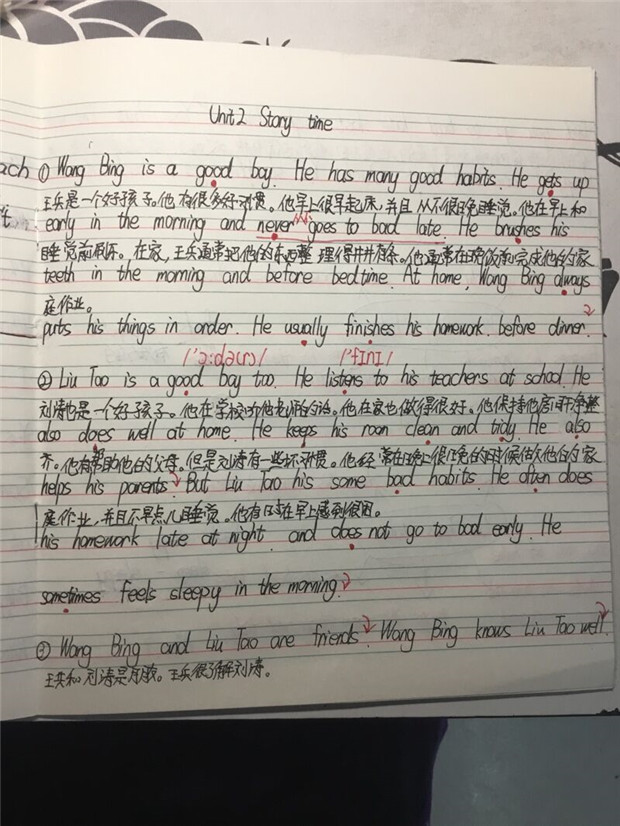 Unit 2 Story time
ach ① Wang Bing is a good boy. He has many good habits. He gets up
王兵是一个好孩子。他有很多好习惯。他早上很早起床，并且从不很晚睡觉。他在早上和
early in the morning and never goes to bad late. He brushes his
睡觉前刷牙。在家，王兵通常把他的东西整理得井井有条。他通常在晚饭前完成他的家
teeth in the morning and before bedtime. At home, Wang Bing always
庭作业。
puts his things in order. He usually finishes his homework before dinner.
/'ɔ:də(r)/ /'fɪnɪ/
② Liu Tao is a good boy too. He listens to his teachers at school. He
刘涛也是一个好孩子。他在学校听他老师的话。他在家也做得很好。他保持他房间干净整
also does well at home. He keeps his roon clean and tidy. He also
齐。他有帮助他的父母。但是刘涛有一些坏习惯。他经常在晚上很晚的时候做他的家
helps his parents. But Liu Tao his some bad habits. He often does
庭作业，并且不早点儿睡觉。他有时在早上感到很困。
his homework late at night and does not go to bad early. He
sometimes feels sleepy in the morning.
③ Wang Bing and Liu Tao are friends. Wang Bing knows Liu Tao well.
王兵和刘涛是朋友。王兵很了解刘涛。